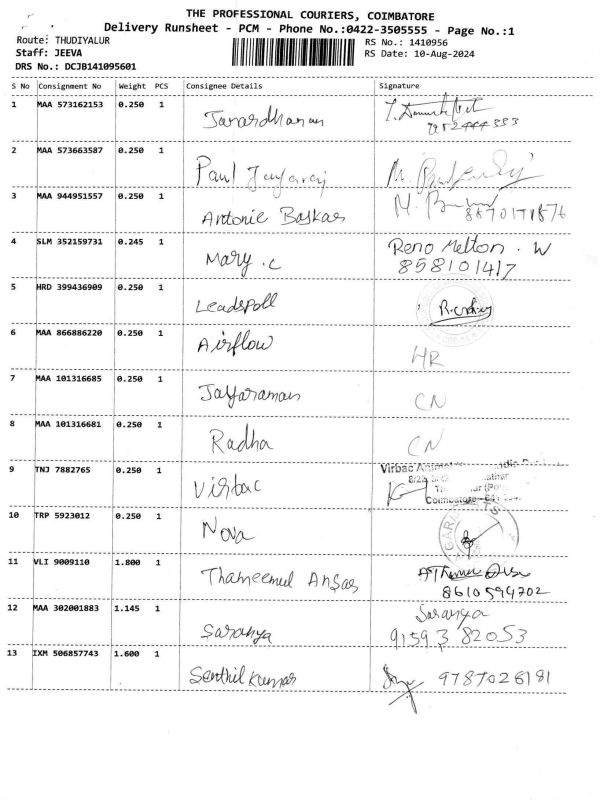 THE PROFESSIONAL COURIERS, COIMBATORE
Delivery Runsheet - PCM - Phone No.:0422-3505555 - Page No.:1
Route: THUDIYALUR RS No.: 1410956
Staff: JEEVA RS Date: 10-Aug-2024
DRS No.: DCJB141095601
S No Consignment No Weight PCS Consignee Details Signature
1 MAA 573162153 0.250 1 Janardhanan
2 MAA 573663587 0.250 1 Paul Jayaraj
3 MAA 944951557 0.250 1 Antonie Baskar M.
4 SLM 352159731 0.245 1 Mary.C Reno Melton . W
858101417
5 HRD 399436909 0.250 1 Leadspoll
6 MAA 866886220 0.250 1 Airflow HR
7 MAA 101316685 0.250 1 Jayaraman CN
8 MAA 101316681 0.250 1 Radha CN
9 TNJ 7882765 0.250 1 Virbac Virbac
Coimbatore
10 TRP 5923012 0.250 1 Nova
11 VLI 9009110 1.800 1 Thameemul Ansar
8610594702
12 MAA 302001883 1.145 1 Saranya Saranya
91593 82053
13 IXM 506857743 1.600 1 Senthil Kumar 9787026181